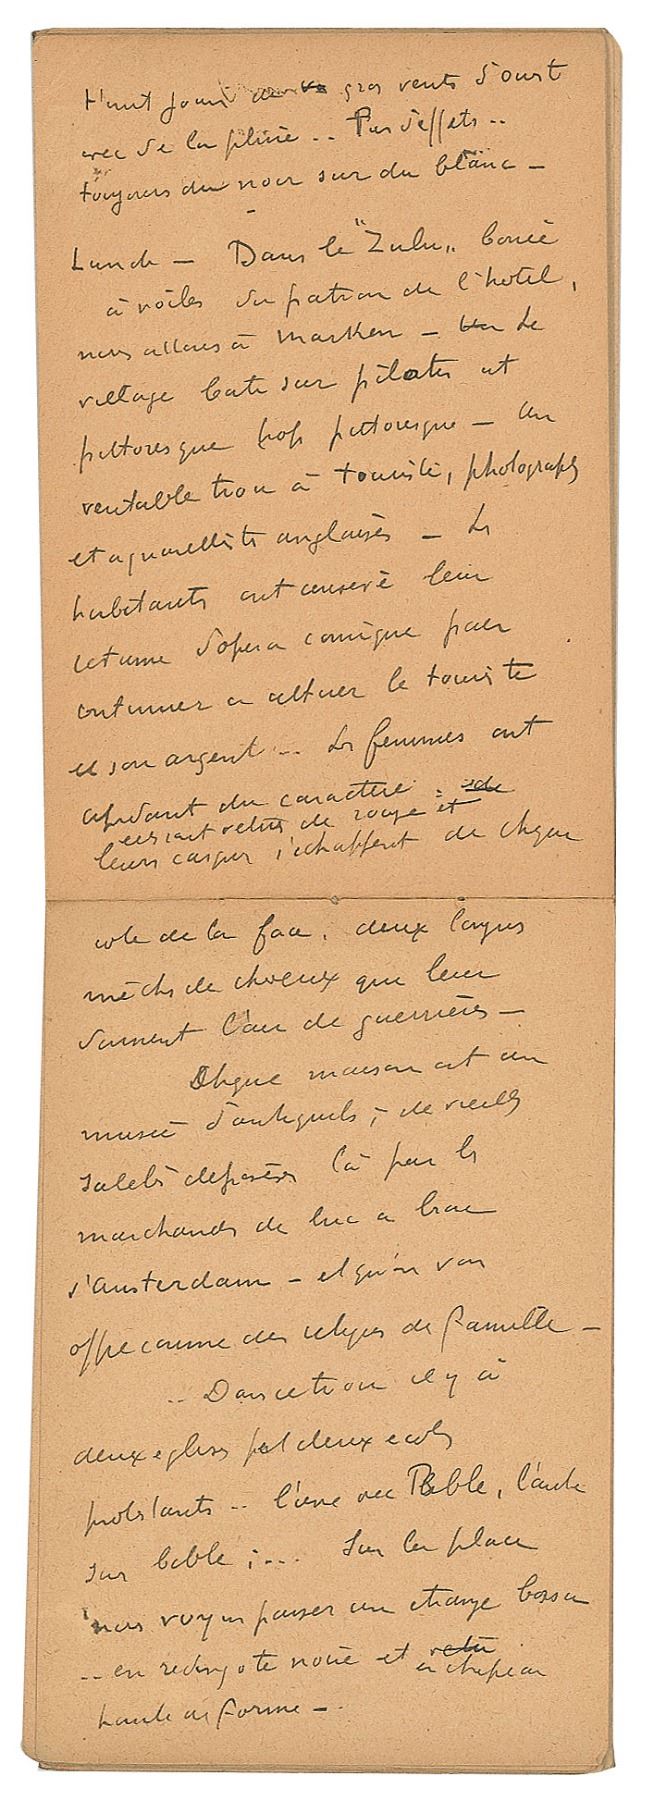 Huit jours de gros vents d'ouest
avec de la pluie .. Pas d'effets ..
toujours du noir sur du blanc –
Lunch – Dans le "Zulu" bouée
à voiles du patron de l'hotel,
nous allons à Marken – Un Le
village bati sur pilotis est
pittoresque trop pittoresque – un
veritable trou à touriste, photographes
et aquarellistes anglaises – Les
habitants ont conservé leur
costume d'opera comique pour
continuer a attirer le touriste
et son argent ... Les femmes ont
cependant du caractere : de
elles sont vetues de rouge et
leurs casques s'echappent de chque
coté de la face, deux longues
méches de cheveux qui leur
donnent l'air de guerrières –
Chque maison est un
musée d'antiquités, de vieilles
saletés deposées là par les
marchands de bric a brac
d'Amsterdam – et qu'on vous
offre comme des reliques de famille –
.. Dans ce trou il y à
deux eglises et deux ecoles
protestants .. l'une avec Bible, l'autre
sans bible ; ... Sur la place
nous voyons passer un etrange bossu
.. en redingote noire et vetu
en chapeau
haute de forme –